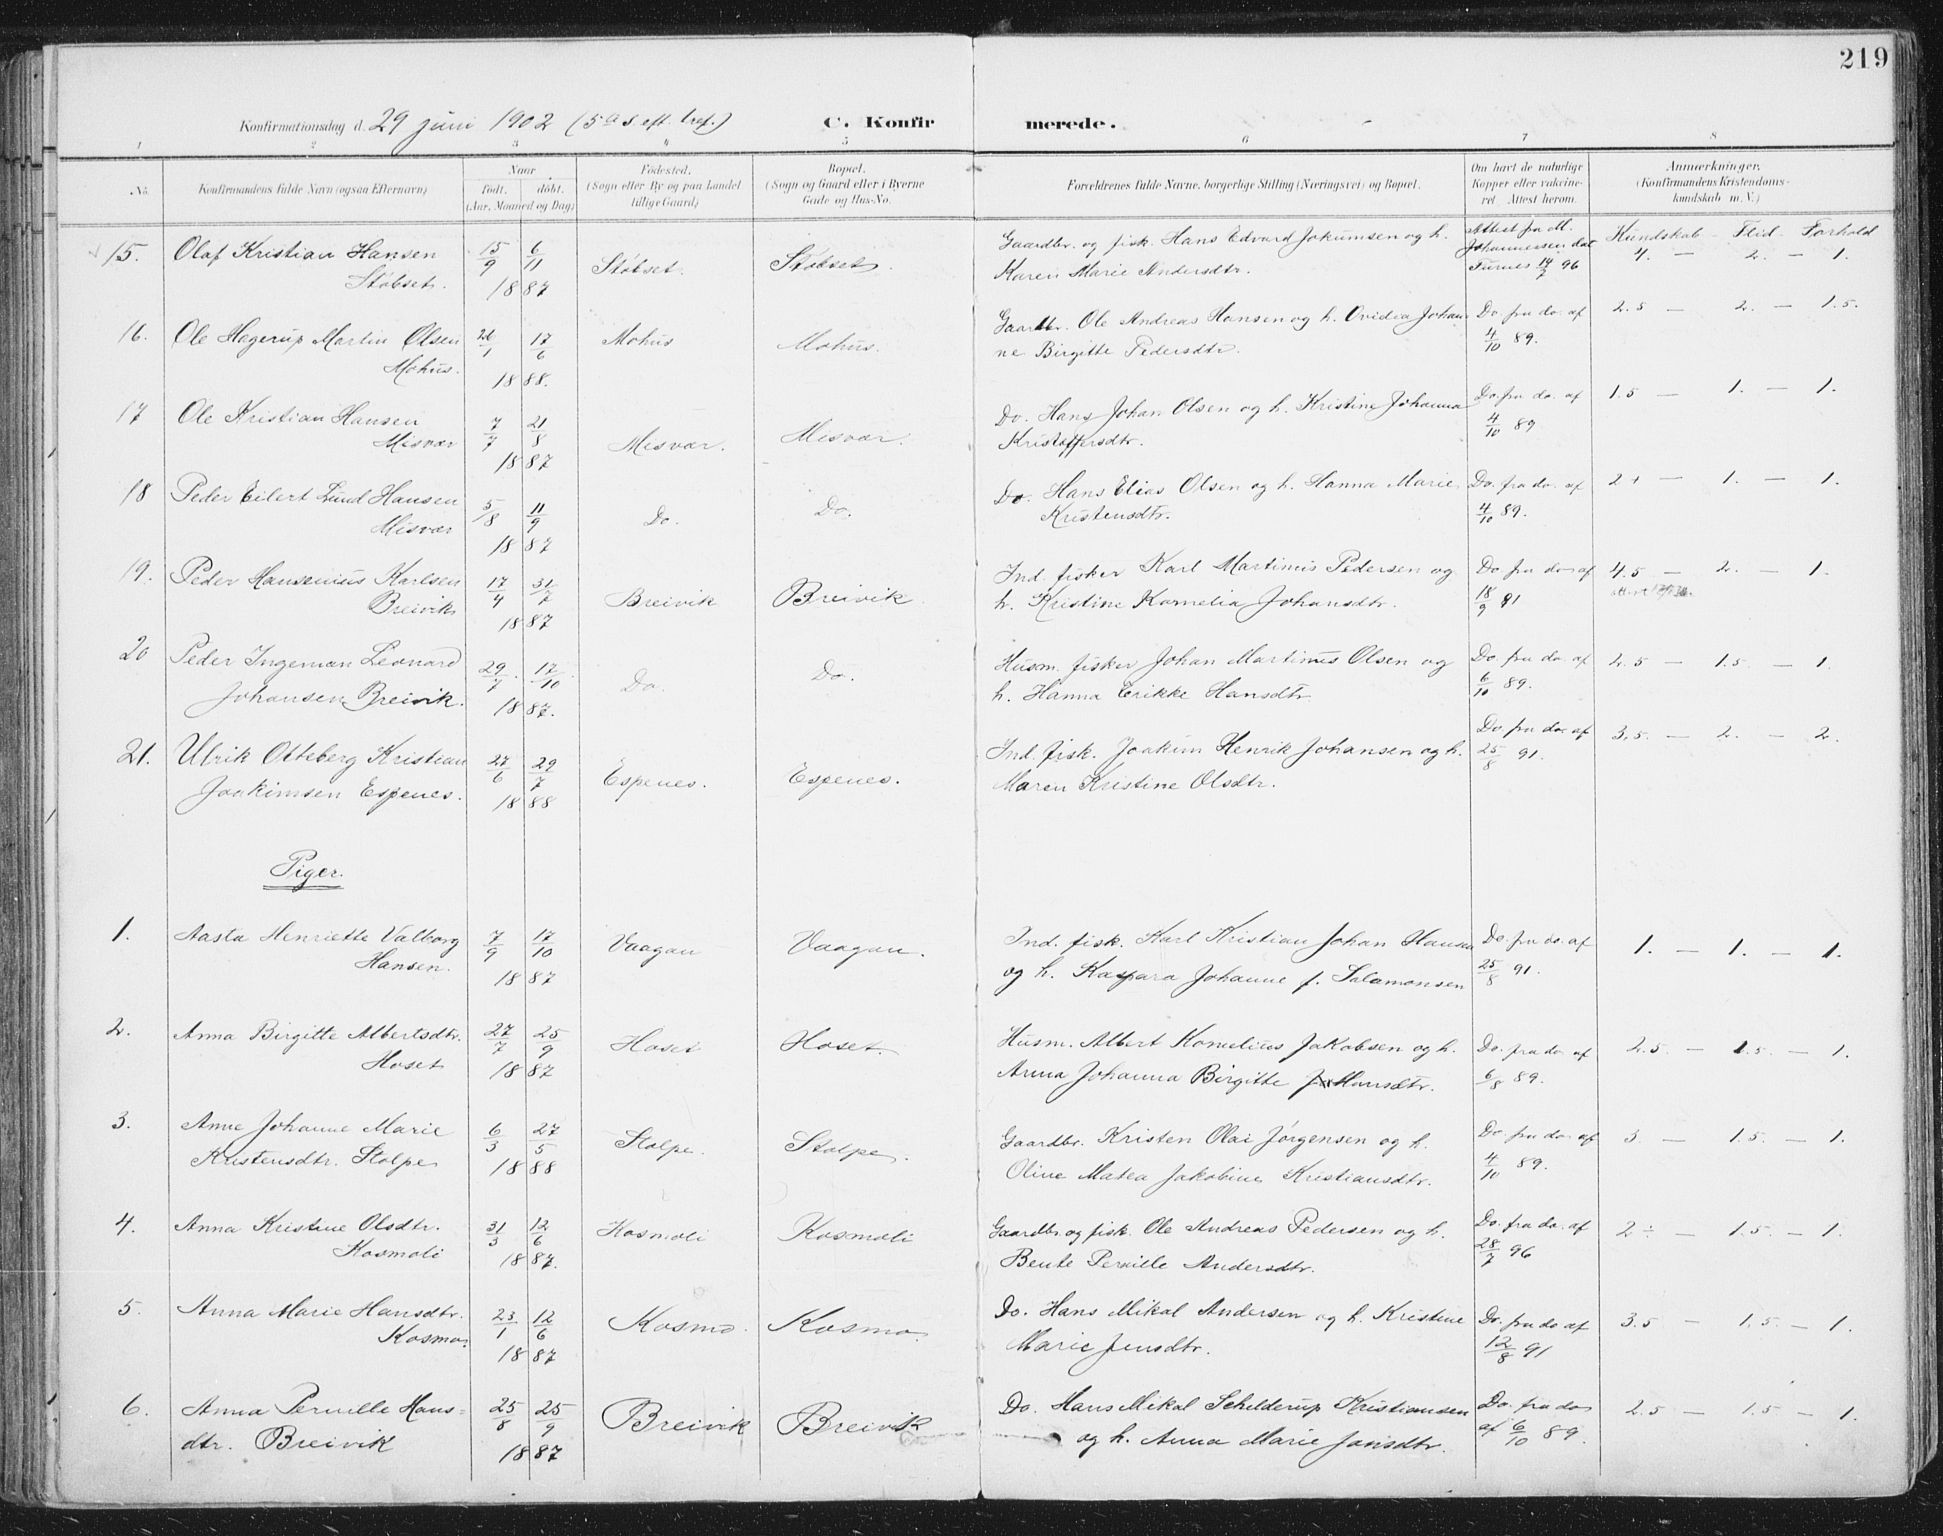 219
Konfirmationsdag d. 29 juni 1902 (5te s. eft. tref.) C. Konfirmerede.
1 2 3 4 5 6 7 8
No. Konfirmandens fulde Navn (ogsaa Efternavn) Naar født. døbt. (Aar, Maaned og Dag) Fødested. (Sogn eller By og paa Landet tillige Gaard) Bopæl. (Sogn og Gaard eller i Byerne Gade og Hus-No. Forældrenes fulde Navne, borgerlige Stilling (Næringsvei) og Bopæl. Om havt de naturlige Kopper eller vakcineret. Attest herom. Anmærkninger. (Konfirmandens Kristendomskundskab m. V.)
Kundskab - Flid - Forhold
15. Olaf Kristian Hansen 15/9 6/11 Støbset. Støbset. Gaardbr. og fisk. Hans Edvard Jokumsen og h. Attest fra M. Johannessen dat.
Støbset. 1887 Karen Marie Andersdtr. Turnes 14/7 96 4. — 2. — 1.
16. Ole Hagerup Martin Olsen 26/1 17/6 Mohus Mohus. Gaardbr. Ole Andreas Hansen og h. Ovidia Johan- Do. fra do. af 2.5 — 2. — 1.5.
Mohus. 1888. ne Birgitte Pedersdtr. 4/10 89.
17 Ole Kristian Hansen 7/7 21/8 Misvær. Misvær. Do. Hans Johan Olsen og h. Kristine Johanna Do. fra do. af 1.5 — 1. — 1.
Misvær 1887 Kristoffersdtr. 4/10 89
18 Peder Eilert Lund Hansen 5/8 11/9 Do. Do. Do. Hans Elias Olsen og h. Hanna Marie Do. fra do. af 2+ — 1. — 1.
Misvær 1887 Kristensdtr. 4/10 89.
19. Peder Hansenius Karlsen 17/4 31/7 Breivik Breivik. Ind. fisker Karl Martinus Pedersen og Do. fra do. af 4.5 — 2. — 1.
Breivik 1887 h. Kristine Kornelia Johansdtr. 18/9 91
20 Peder Ingeman Leonard 29/7. 17/10. Do. Do. Husm. fisker Johan Martinus Olsen og Do. fra do. af 2.5 — 1.5. — 1.
Johansen Breivik. 1887. h. Hanna Erikke Hansdtr. 6/10 89.
21. Ulrik Otteberg Kristian 27/6 29/7 Espenes. Espenes. Ind. fisk. Joakim Henrik Johansen og h. Do. fra do. af 3.5. — 2. — 2.
Joakimsen Espenes. 1888 Maren Kristine Olsdtr. 25/8 91.
Piger.
1. Aasta Henriette Valborg 7/9 17/10 Vaagan Vaagan. Ind. fisk. Karl Kristian Johan Hansen Do. fra do. af 1. — 1. — 1.
Hansen. 1887 og h. Kaspara Johanne f. Salamonsen 25/8 91.
2. Anna Birgitte Albertsdtr. 27/7 25/9 Hoset Hoset. Husm. Albert Kornelius Jakobsen og h. Do. fra do. af 2.5. — 1.5. — 1.
Hoset 1887 Anna Johanna Birgitte Hansdtr. 6/8 89.
3. Anne Johanne Marie 6/3 27/5 Stolpe. Stolpe. Gaardbr. Kristen Olai Jørgensen og h. Do. fra do. af 3. — 1.5. — 1.
Kristensdtr. Stolpe 1888 Oline Matea Jakobine Kristiansdtr. 4/10 89.
4. Anna Kristine Olsdtr. 31/3 12/6 Kosmoli Kosmoli Gaardbr. og fisk. Ole Andreas Pedersen og h. Do. fra do. af 2 ÷ — 1.5. — 1.
Kosmoli 1887. Bente Pernille Andersdtr. 28/7 96
5. Anna Marie Hansdtr. 23/1 12/6 Kosmo. Kosmo. Do. Hans Mikal Andersen og h. Kristine Do. fra do af 3.5 — 1.5. — 1.
Kosmo. 1887 Marie Jensdtr. 12/8 91
6. Anna Pernille Hans- 25/8 25/9 Breivik Breivik Do. Hans Mikal Schelderup Kristiansen Do. fra do 2.5 — 1.5 — 1.
dtr. Breivik 1887 og h. Anna Marie Jonsdtr. af 6/10 89.